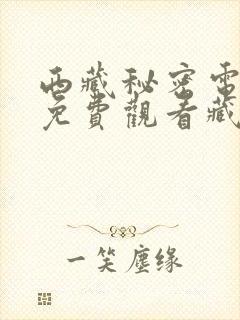 西藏秘密電
免費觀看藏
一笑塵缘